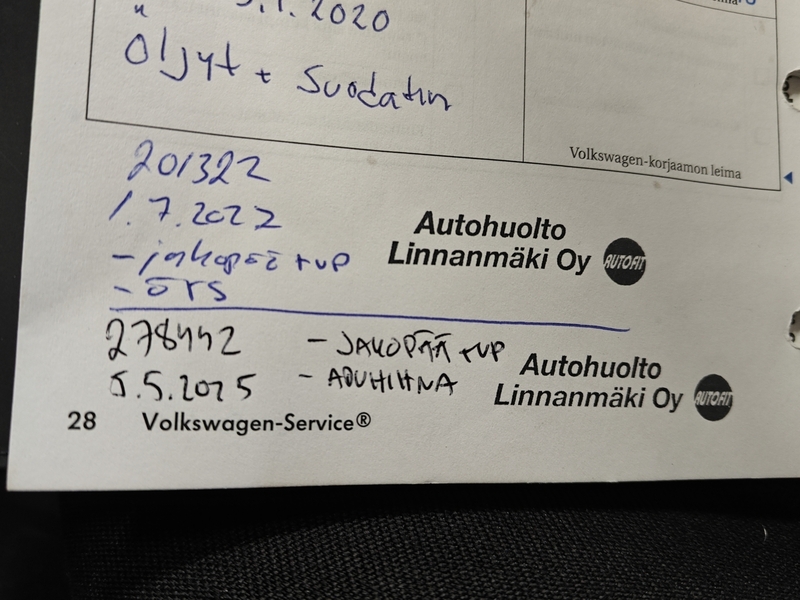 5.1.2020
Öljyt + Suodatin
Volkswagen-korjaamon leima
201322
1.7.2022
- jakopää + VP
- ÖTS
Autohuolto
Linnanmäki Oy AUTOFIT
278442 - JAKOPÄÄ + VP
5.5.2025 - APUHIHNA
Autohuolto
Linnanmäki Oy AUTOFIT
28 Volkswagen-Service®